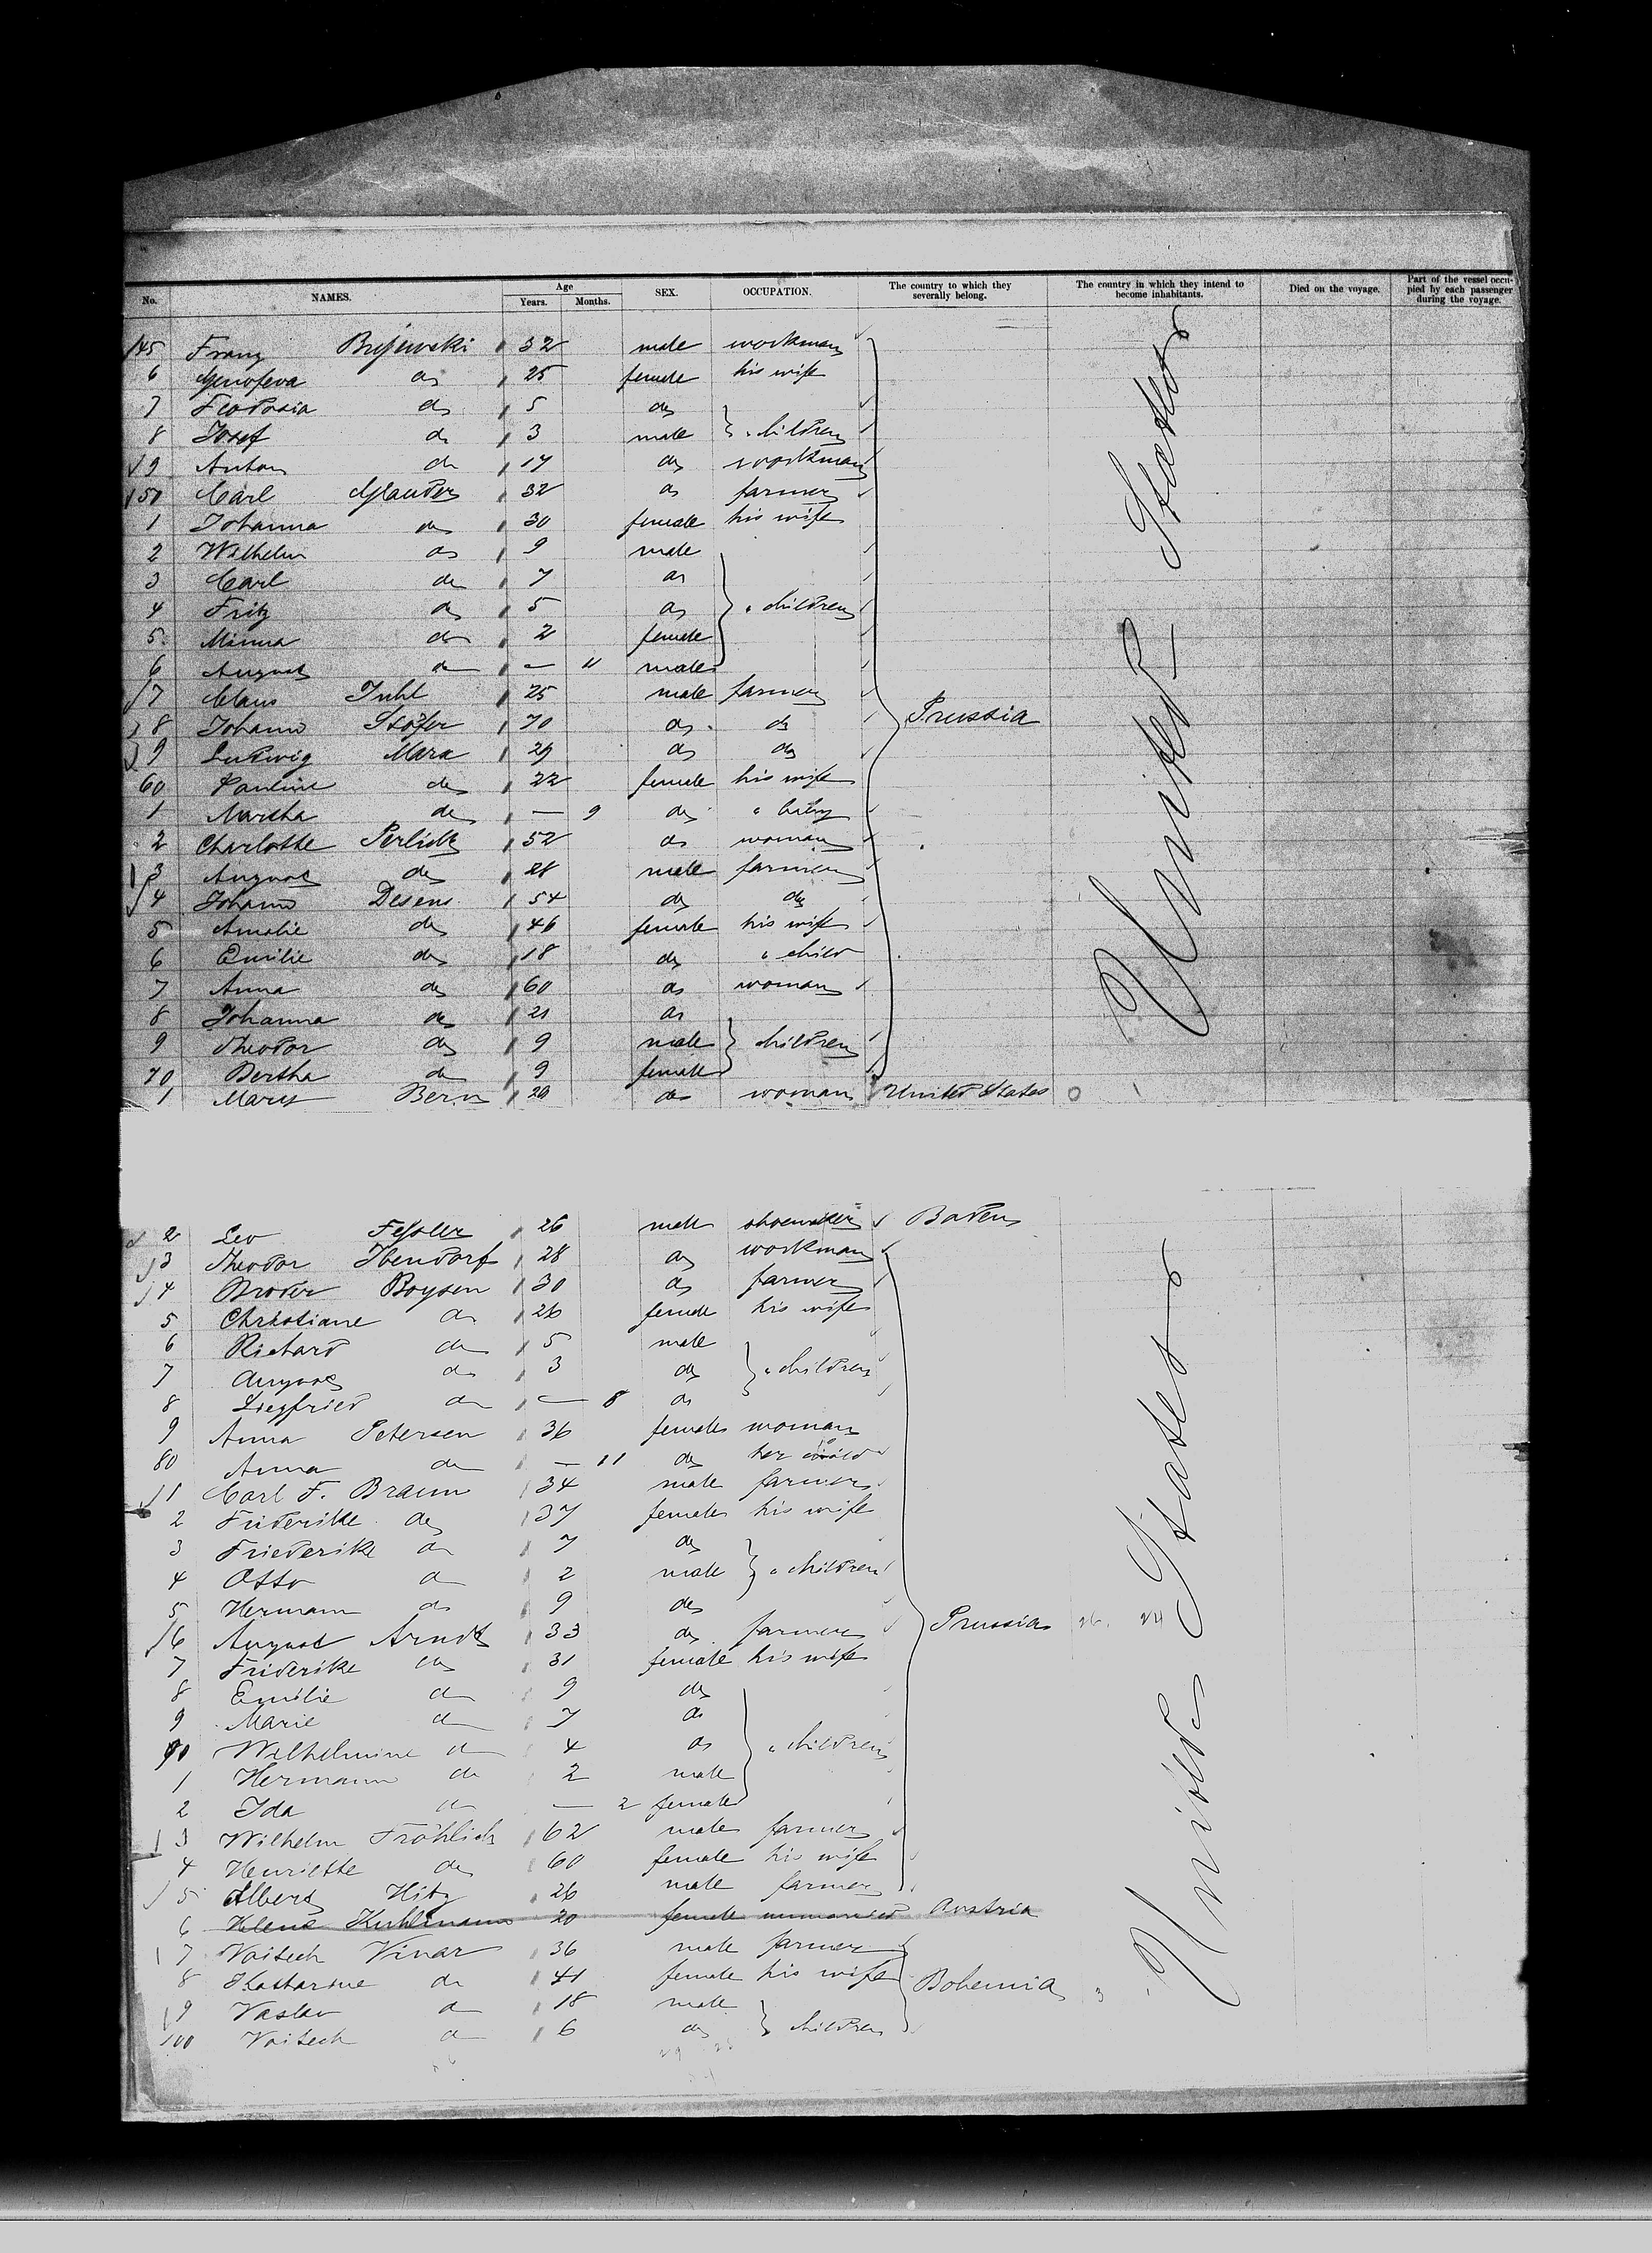 No. NAMES. Age Years. Months. SEX. OCCUPATION. The country to which they severally belong. The country in which they intend to become inhabitants. Died on the voyage. Part of the vessel occupied by each passenger during the voyage.
145 Franz Bujewski 32 male workman
6 Genofeva do 25 female his wife
7 Feodosia do 5 do
8 Josef do 3 male " children
9 Anton do 17 do workman
150 Carl Glander 32 do farmer
1 Johanna do 30 female his wife
2 Wilhelm do 9 male
3 Carl do 7 do
4 Fritz do 5 do " children
5 Minna do 2 female
6 August do — 11 male
7 Claus Juhl 25 male farmer
8 Johann Stöfer 70 do do Prussia United States
9 Ludwig Marx 29 do do
60 Pauline do 22 female his wife
1 Martha do — 9 do " baby
2 Charlotte Perlick 52 do woman
3 August do 28 male farmer
4 Johann Desens 54 do do
5 Amalie do 46 female his wife
6 Emilie do 18 do " child
7 Anna do 60 do woman
8 Johanna do 21 do
9 Theodor do 9 male children
70 Bertha do 9 female
1 Mary Bern 20 do woman United States
2 Leo Fessler 26 male shoemaker Baden
3 Theodor Ibendorf 28 do workman
4 Broder Boysen 30 do farmer
5 Christiane do 26 female his wife
6 Richard do 5 male
7 August do 3 do " children
8 Siegfried do — 8 do
9 Anna Petersen 36 female woman
80 Anna do — 11 do her child
1 Carl F. Braun 34 male farmer
2 Friderike do 37 female his wife
3 Friederike do 7 do
4 Otto do 2 male " children
5 Hermann do 9 do
6 August Arndt 33 do farmer Prussia 26. 24 United States
7 Friderike do 31 female his wife
8 Emilie do 9 do
9 Marie do 7 do
90 Wilhelmine do 4 do " children
1 Hermann do 2 male
2 Ida do — 2 female
3 Wilhelm Fröhlich 62 male farmer
4 Henriette do 60 female his wife
5 Albert Hitz 26 male farmer
6 Helene Kuhlmann 20 female unmarried Austria
7 Voitech Vinar 36 male farmer
8 Katharine do 41 female his wife Bohemia 3
9 Vaslav do 18 male
100 Voitech do 6 do children